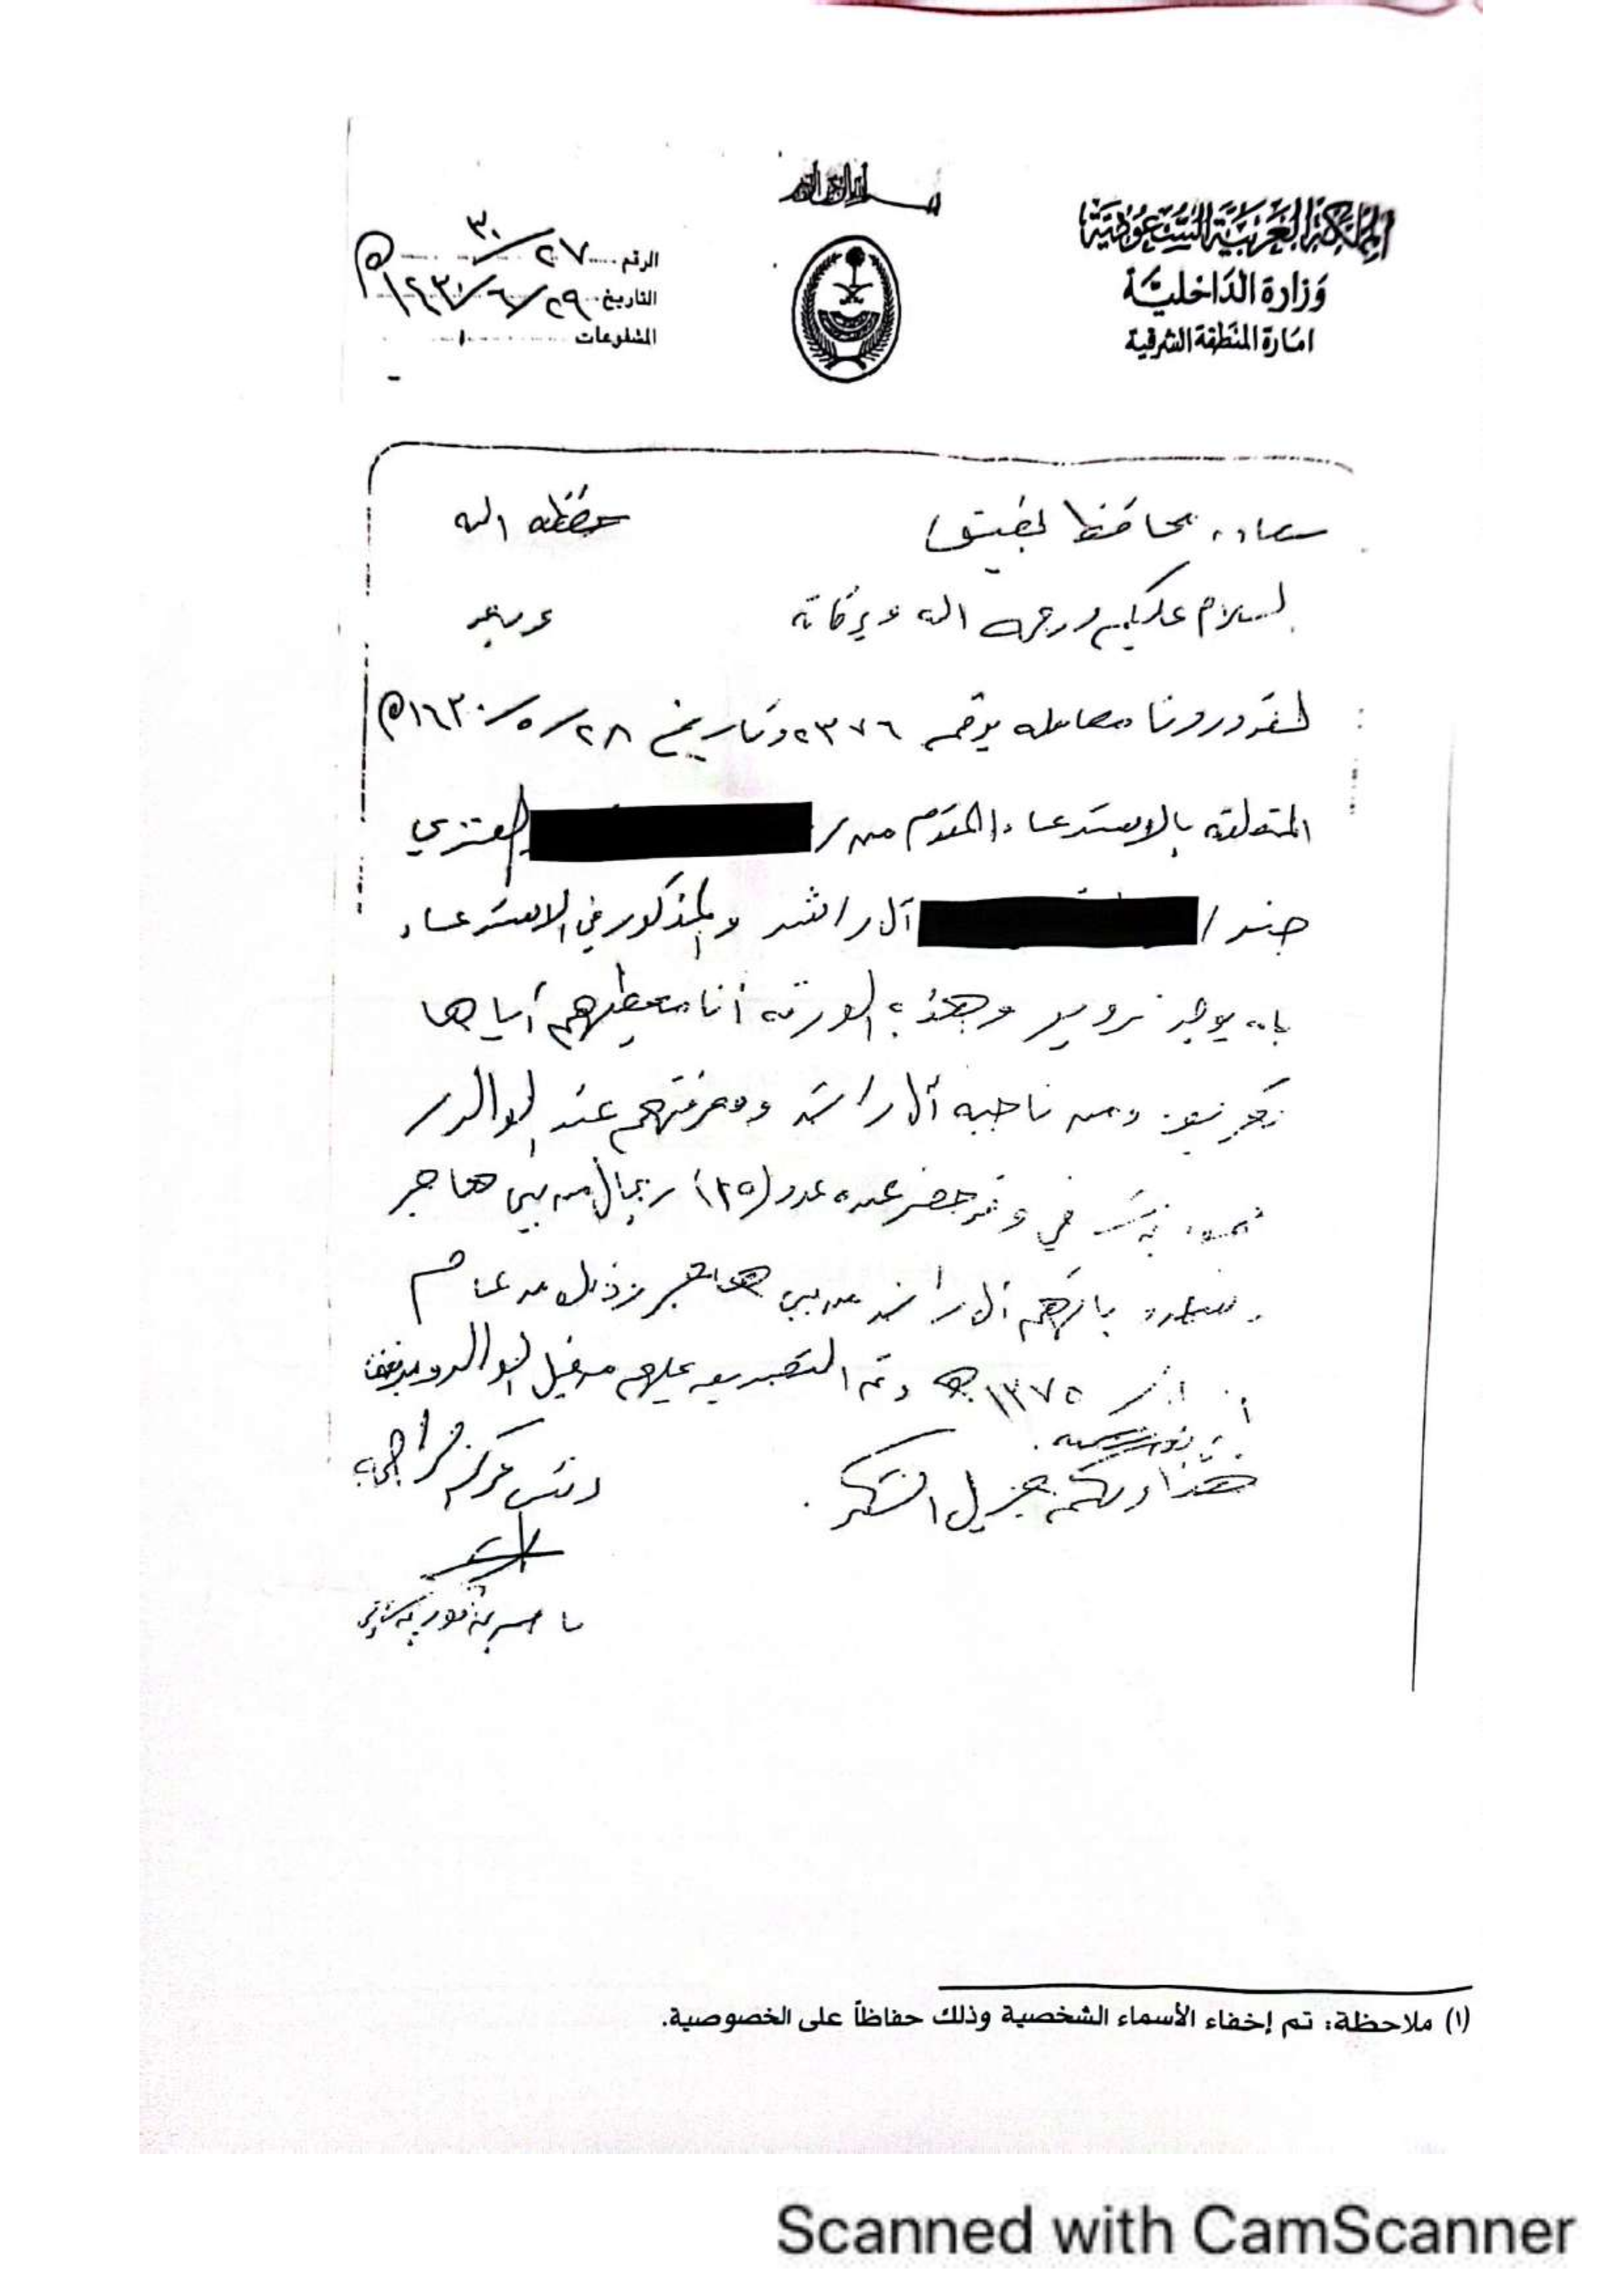 بسم الله الرحمن الرحيم
المملكة العربية السعودية
وزارة الداخلية
امارة المنطقة الشرقية
الرقم ٢٧/٣٠
التاريخ ٢٩/٦/١٤٣٠هـ
المشفوعات ١
سعادة محافظ بقيق حفظه الله
السلام عليكم ورحمة الله وبركاته وبعد
لقد وردنا معامله برقم ٢٣٧٦ وتاريخ ٢٨/٥/١٤٣٠هـ
المتعلقه بالاستدعاء المقدم من / العنزي
ضد / آل راشد والمذكور في الاستدعاء
بانه يوجد تزوير وهذه الورقه أنا معطيهم أياها
ومن ناحية آل راشد ومعرفتهم عند الوالد
في وقد حضر عنده عدد (٢٥) رجال من بني هاجر
بانهم آل راشد من بني هاجر وذلك من عام
١٣٧٥هـ وتم التصديق عليهم من قبل الوالد
هذا ولكم جزيل الشكر.
رئيس مركز
(١) ملاحظة: تم إخفاء الأسماء الشخصية وذلك حفاظاً على الخصوصية.
Scanned with CamScanner